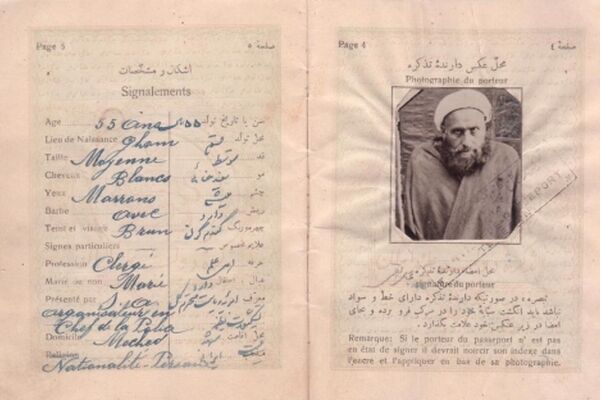 Page 5
صفحه ٥
اشکال و مشخصات
Signalements
Age 55 ans
سن یا تاریخ تولد
Lieu de Naissance Ghom
محل تولد قم
Taille Moyenne
قد متوسط
Cheveux Blancs
مو
Yeux Marrons
چشم
Barbe avec
ریش دارد
Teint et visage Brun
گندم گون
Signes particuliers
علایم مخصوص
Profession Clergé
حرفه
Marié ou non Marié
Présenté par S. A.
معرف
organisateur en
Chef de la
Domicile Meched
محل اقامت
Religion
Nationalité - Persane
Page 4
صفحه ٤
محل عکس دارندهٔ تذکره
Photographie du porteur
محل امضاء دارندهٔ تذکره
signature du porteur
تبصره، در صورتیکه دارندهٔ تذکره دارای خط و سواد
نباشد باید انگشت سبابهٔ خود را در مرکب فرو برده و بجای
امضا در زیر عکس خود علامت بگذارد.
Remarque: Si le porteur du passeport n' est pas
en état de signer il devrait noircir son indexe dans
l'encre et l'appliquer en bas de sa photographie.